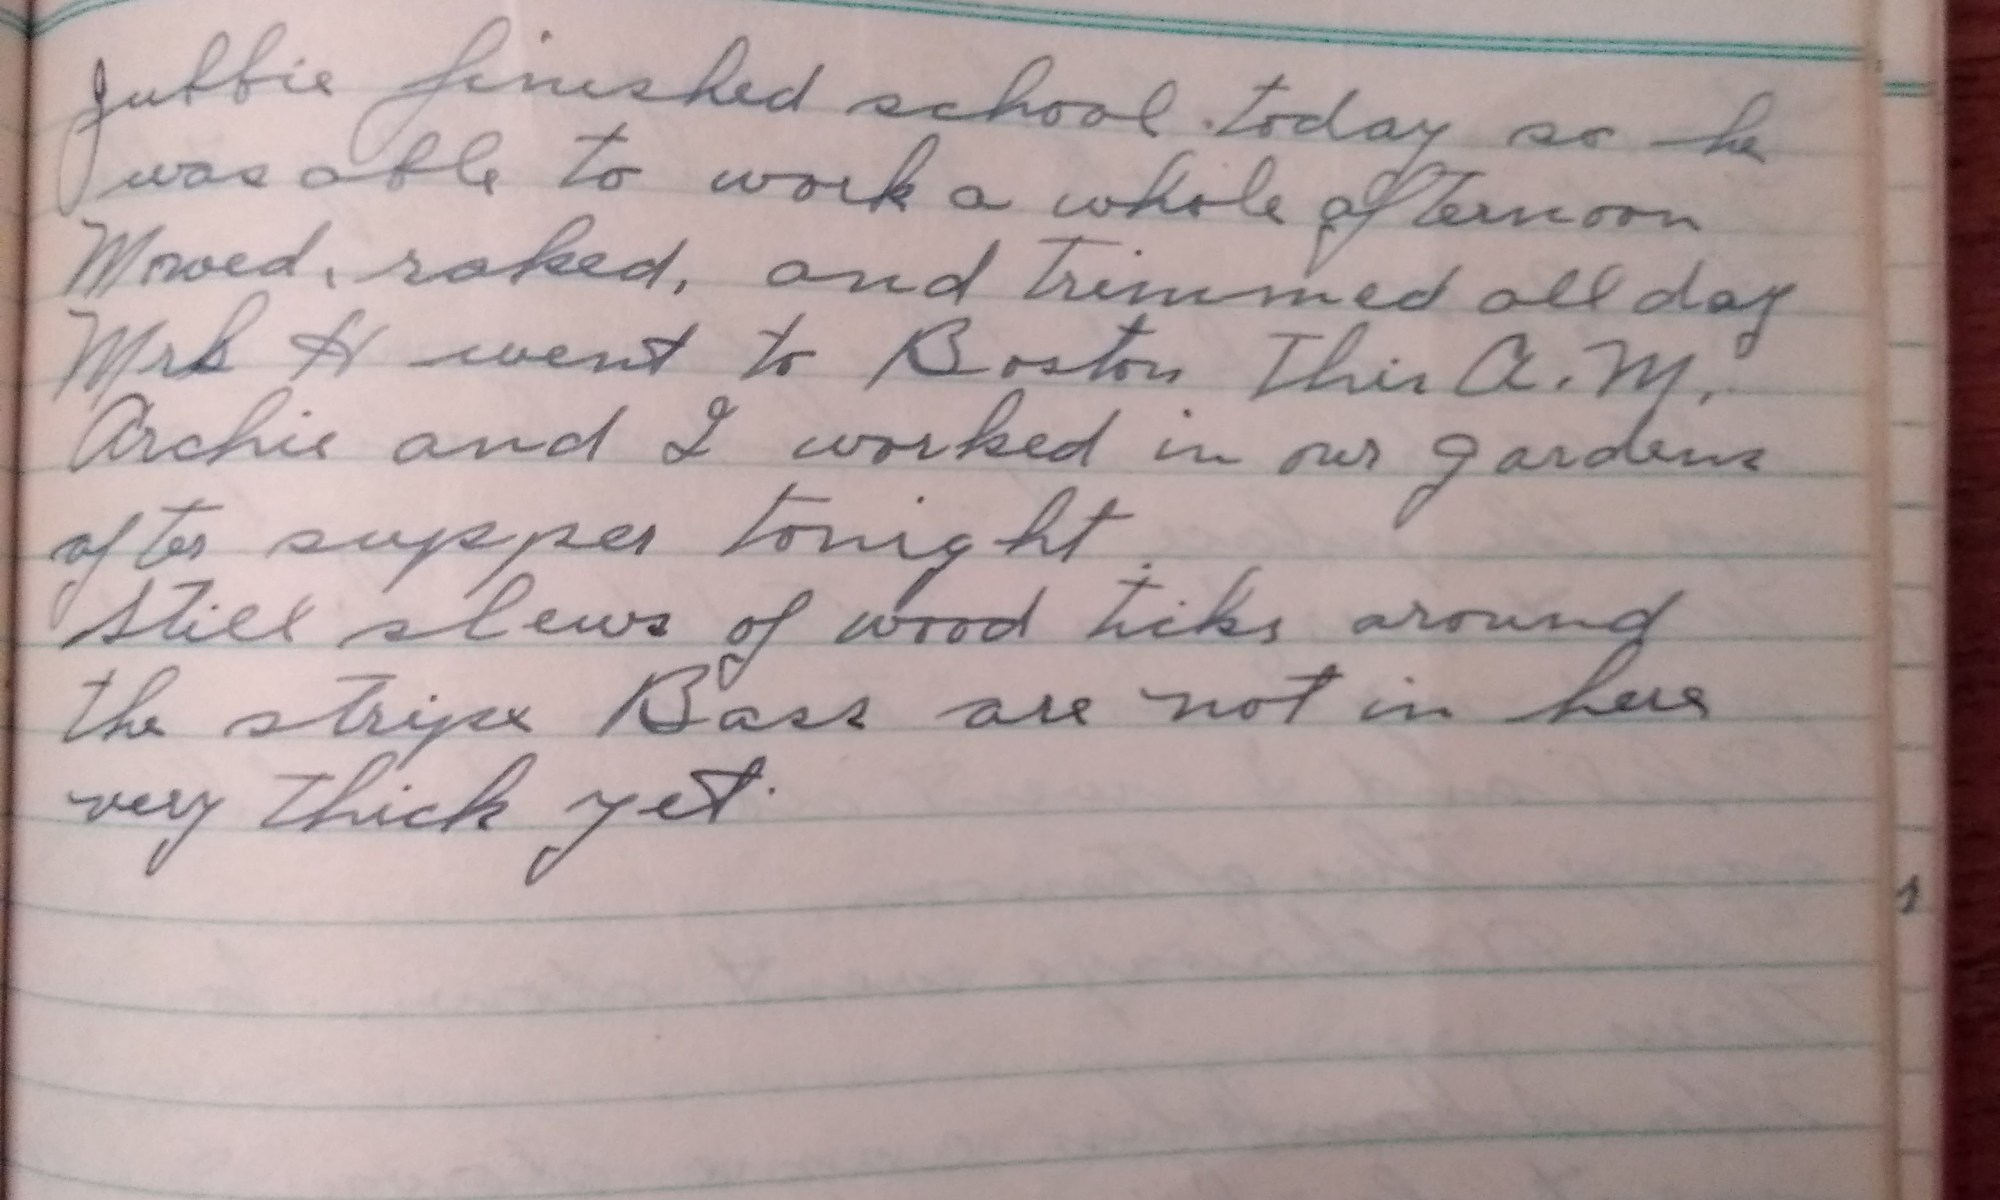 Jubbie finished school today so he
was able to work a whole afternoon
Mowed, raked, and trimmed all day
Mrs H went to Boston This A.M.
Archie and I worked in our gardens
after supper tonight
Still slews of wood ticks around
the stripe Bass are not in here
very thick yet.